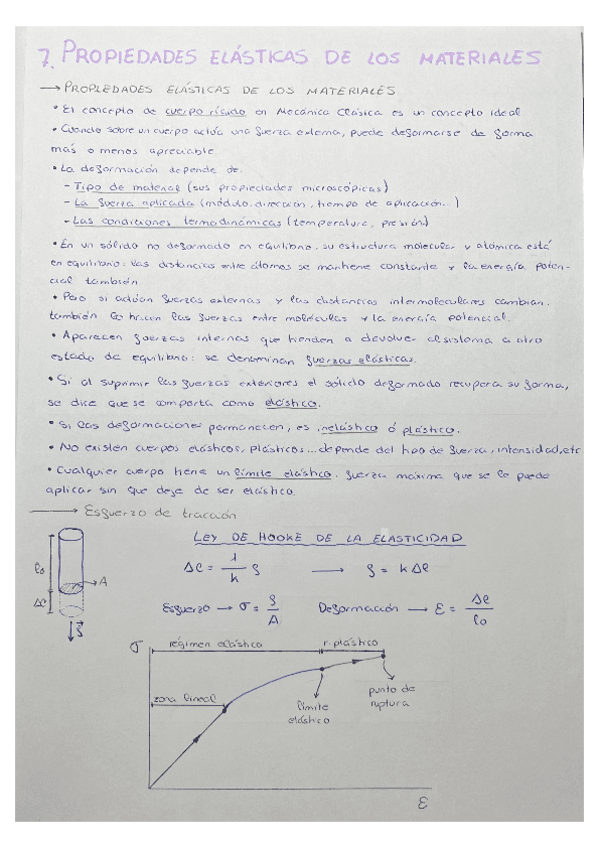 7. PROPIEDADES ELÁSTICAS DE LOS MATERIALES
→ PROPIEDADES ELÁSTICAS DE LOS MATERIALES
• El concepto de cuerpo rígido en Mecánica Clásica es un concepto ideal
• Cuando sobre un cuerpo actúa una fuerza externa, puede deformarse de forma
más o menos apreciable.
• La deformación depende de:
- Tipo de material (sus propiedades microscópicas)
- La fuerza aplicada (módulo, dirección, tiempo de aplicación...)
- Las condiciones termodinámicas (temperatura, presión)
• En un sólido no deformado en equilibrio, su estructura molecular y atómica está
en equilibrio: las distancias entre átomos se mantiene constante y la energía poten-
cial también.
• Pero si actúan fuerzas externas y las distancias intermoleculares cambian,
también lo hacen las fuerzas entre moléculas y la energía potencial.
• Aparecen fuerzas internas que tienden a devolver al sistema a otro
estado de equilibrio: se denominan fuerzas elásticas.
• Si al suprimir las fuerzas exteriores el sólido deformado recupera su forma,
se dice que se comporta como elástico.
• Si las deformaciones permanecen, es inelástico ó plástico.
• No existen cuerpos elásticos, plásticos... depende del tipo de fuerza, intensidad, etc
• Cualquier cuerpo tiene un límite elástico: fuerza máxima que se le puede
aplicar sin que deje de ser elástico.
→ Esfuerzo de tracción
LEY DE HOOKE DE LA ELASTICIDAD
l₀
Δl
A
f
Δl = 1/k f → f = kΔl
Esfuerzo → σ = f/A Deformación → ε = Δl/l₀
σ
régimen elástico
r. plástico
zona lineal
límite
elástico
punto de
ruptura
ε